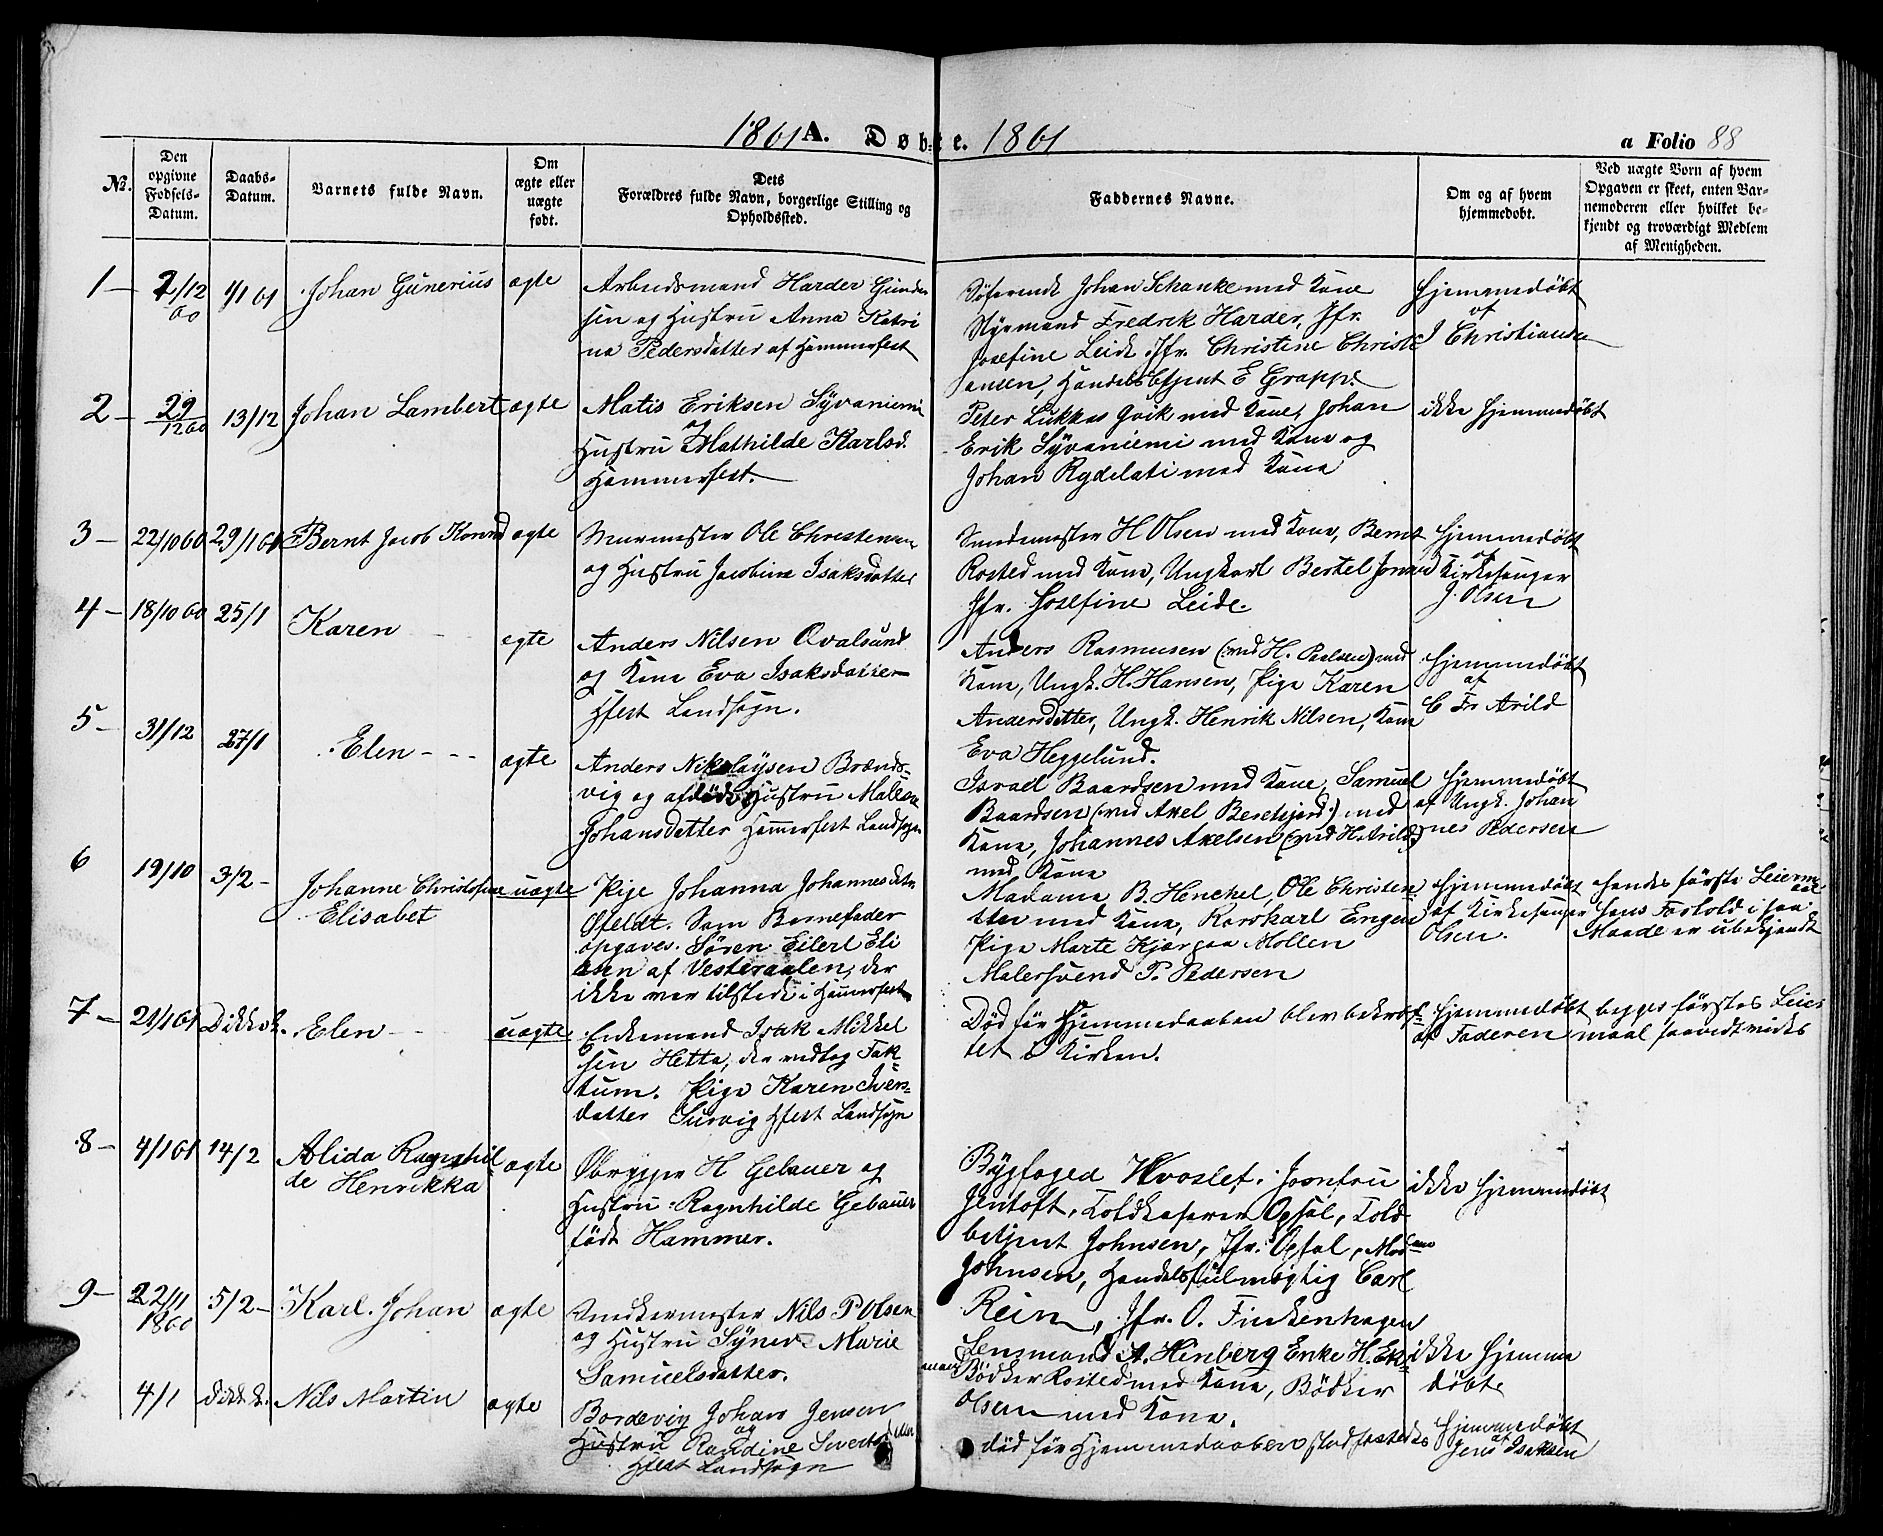 1861 A. Døbte. 1861
a Folio 88
№.
Den opgivne Fødsels-Datum.
Daabs-Datum.
Barnets fulde Navn.
Om ægte eller uægte født.
Dets Forældres fulde Navn, borgerlige Stilling og Opholdssted.
Faddernes Navne.
Om og af hvem hjemmedøbt.
Ved uægte Børn af hvem Opgaven er skeet, enten Barnemoderen eller hvilket bekjendt og troværdigt Medlem af Menigheden.
1 — 2/12 60 1/1 61 Johan Gunerius ægte
Arbeidsmand Harder Gunder
sen og Hustru Anna Katri
na Pedersdatter af Hammerfest
Søfarende Johan Schanke med Kone
Styrmand Fredrik Harder, Jfr.
Josefine Leide, Jfr. Christine Christi
ansen, Handelsbetjent E Grapp.
Hjemmedøbt
af
J Christiansen
2 — 29/12 60 13/12 Johan Lambert ægte
Matis Eriksen Syvaniemi
og
Hustru Mathilde Karlsd.
Hammerfest.
Peter Lukkas Qvik med Kone, Johan
Erik Syvaniemi med Kone og
Johan Rydelati med Kone
ikke hjemmedøbt
3 — 22/10 60 29/1 61 Bernt Jacob Konrad ægte
Murmester Ole Christensen
og Hustru Jacobine Isaksdatter
Smedemester H Olsen med Kone, Bernt
Rosted med Kone, Ungkarl Bertel Jonsen
Jfr. Josefine Leide.
Hjemmedøbt
af
Kirkesanger
J. Olsen
4 — 18/10 60 25/1 Karen ægte
Anders Nilsen Qvalsund
og Kone Eva Isaksdatter
Hfest Landsogn.
Anders Rasmusen (ved H. Paulsen) med
Kone, Ungk. H. Hansen, Pige Karen
Andersdatter, Ungk. Henrik Nilsen, Kone
Eva Heggelund.
Hjemmedøbt
af
C Fr Arild
5 — 31/12 27/1 Elen ægte
Anders Nikolaysen Brænds-
vig og afdøde Hustru Malena
Johansdatter Hammerfest Landsogn
Israel Baardsen med Kone, Samuel
Baardsen (ved Axel Beretsjord.) med
Kone, Johannes Axelsen (ved H. Arild)
med Kone
Hjemmedøbt
af Ungk. Johan
nes Pedersen
6 19/10 3/2 — Johanne Christofine
Elisabet uægte
Pige Johanna Johannesdtr
Øfeldt. Som Barnefader
opgaves. Søren Eilert Eli
asen af Vesteraalen, der
ikke var tilstede i Hammerfest
Madame B. Henckel, Ole Christen
sen med Kone, Rorskarl Engen
Pige Marte Kjærgaa Mollen
Malersvend P. Pedersen
Hjemmedøbt
af Kirkesanger
Olsen.
hendes første Leierm
aal
hans Forhold i saa
Maade er ubekjendt
7 — 21/1 61 Dikkok. Elen uægte
Enkemand Isak Mikkel
sen Hetta, der vedtog Fak-
tum. Pige Karen Ivers-
datter Survig Hfest Landsogn
Død før Hjemmedaaben blev bekræf-
tet i Kirken.
Hjemmedøbt
af Faderen
begges førstes Leier
maal saavidt vides
8 — 4/1 61 14/2 Alida Ragnhil
de Henrikka ægte
Ølbrygger H Gebauer og
Hustru Ragnhilde Gebauer
født Hammer.
Bygfoged Hvoslef. Jomfru
Jentoft, Toldkaserer Opsal, Told
betjent Johnsen, Jfr. Opsal, Madame
Johnsen, Handelsfulmægtig Carl
Rein, Jfr. O. Finkenhagen
ikke hjemmedøbt
9 — 22/11 1860 5/2 — Karl Johan ægte
Snedkermester Nils P Olsen
og Hustru Synev Marie
Samuelsdatter.
Lensmand A. Hinberg Enke H. Ek
man, Bødker Rosted med Kone, Bødker
Olsen med Kone.
ikke hjemme
døbt
4/1 Nils Martin ægte
Bordevig Johan Jensen
og
Hustru Randine Sivertsdatter
Hfest Landsogn
død før Hjemmedaaben stadfæstedes
Hjemmedøbt
af
Jens Isaksen